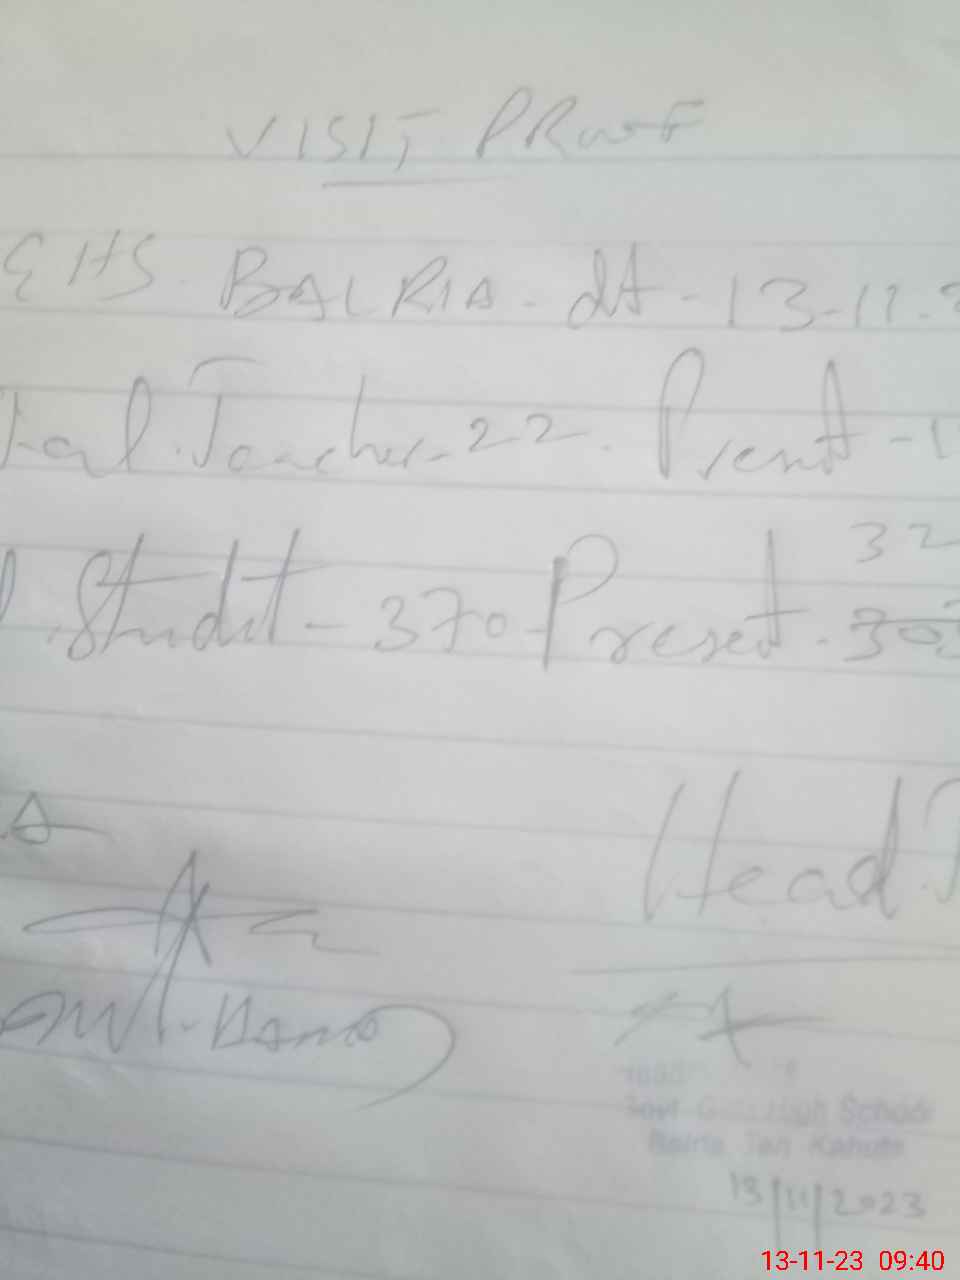 VISIT PROOF
EHS. BALRIA - dt - 13-11.2
tal. Teacher - 22. Present - 1
Studt - 370 - Present. 32
A
Head
Govt Girls High School
Balria Teh Kahuta
13/11/2023
13-11-23 09:40